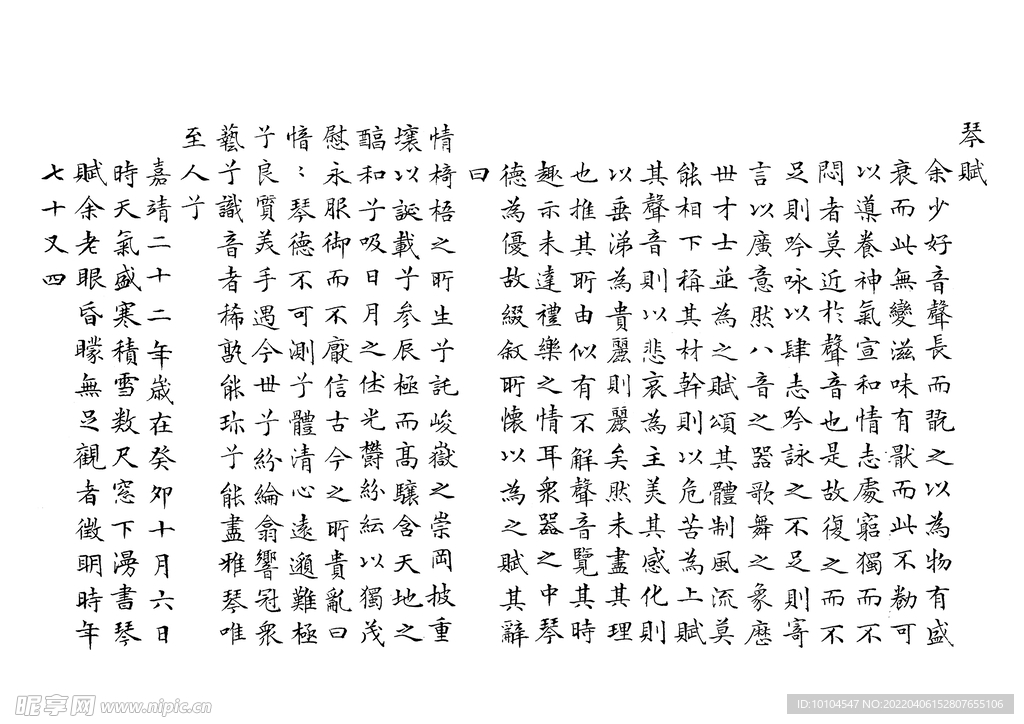 琴賦
余少好音聲長而翫之以為物有盛
衰而此無變滋味有猒而此不勌可
以導養神氣宣和情志處窮獨而不
悶者莫近於聲音也是故復之而不
足則吟咏以肆志吟詠之不足則寄
言以廣意然八音之器歌舞之象歷
世才士並為之賦頌其體制風流莫
能相下稱其材幹則以危苦為上賦
其聲音則以悲哀為主美其感化則
以垂涕為貴麗則麗矣然未盡其理
也推其所由似有不解聲音覽其時
趣示未達禮樂之情耳衆器之中琴
德為優故綴叙所懷以為之賦其辭
曰
情椅梧之所生兮託峻嶽之崇岡披重
壤以誕載兮参辰極而高驤含天地之
醕和兮吸日月之休光欝紛紜以獨茂
慰永服御而不厭信古今之所貴亂曰
愔〻琴德不可測兮體清心遠邈難極
兮良質美手遇今世兮紛綸翕響冠衆
藝兮識音者稀孰能珎兮能盡雅琴唯
至人兮
嘉靖二十二年歲在癸卯十月六日
時天氣盛寒積雪数尺窓下漫書琴
賦余老眼昏矇無足觀者徴明時年
七十又四
昵享网 www.nipic.cn
ID:10104547 NO:20220406152807655106